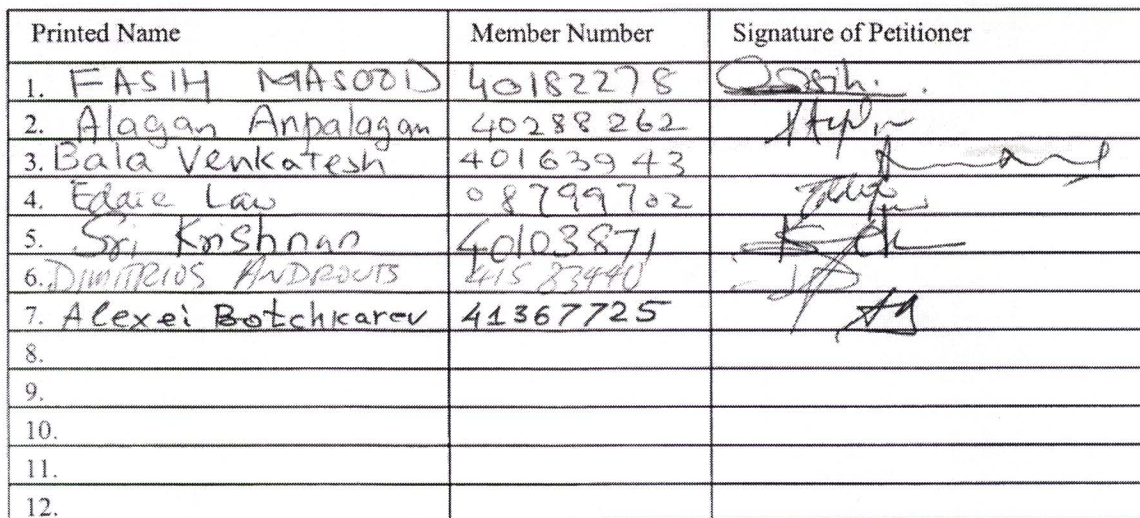 Printed Name Member Number Signature of Petitioner
1. FASIH MASOOD 40182278
2. Alagan Anpalagan 40288262
3. Bala Venkatesh 40163943
4. Eddie Law 08799702
5. Sri Krishnan 40103871
6. DIMITRIOS ANDROUTS 41583440
7. Alexei Botchkarev 41367725
8.
9.
10.
11.
12.